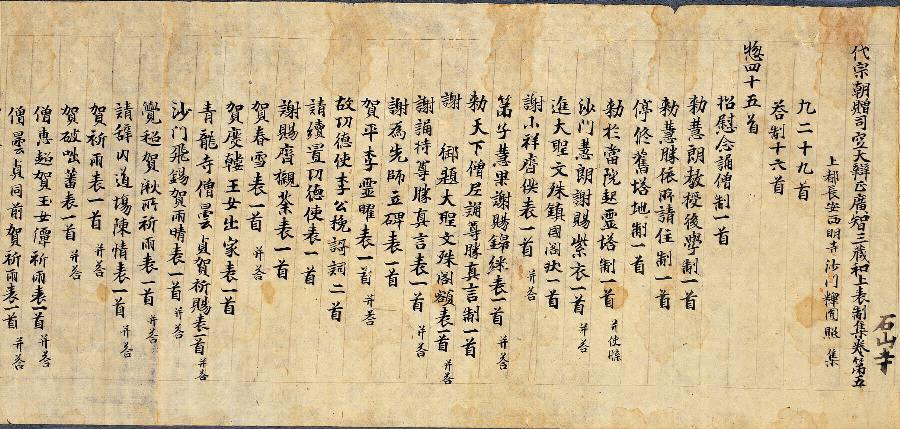 石山寺
代宗朝贈司空大辯正廣智三藏和上表制集卷第五
上都長安西明寺沙門釋圓照集
九二十九首
荅制十六首
惣四十五首
招慰念誦僧制一首
勅慧朗教授後學制一首
勅慧勝依所請住制一首
停修舊塔地制一首
勅於當院起靈塔制一首 并使牒
沙門慧朗謝賜紫衣表一首 并荅
進大聖文殊鎮國閣狀一首
謝小祥齋供表一首 并荅
弟子慧果謝賜錦綵表一首 并荅
勅天下僧尼誦尊勝真言制一首
謝 御題大聖文殊閣額表一首 并荅
謝誦持尊勝真言表一首 并荅
謝為先師立碑表一首 并荅
賀平李靈曜表一首 并荅
故功德使李公挽謌詞二首
請續置功德使表一首
謝賜齋襯茶表一首
賀春雪表一首 并荅
賀慶王女出家表一首
青龍寺僧曇貞賀祈賜表一首 并荅
沙門飛錫賀雨晴表一首 并荅
覺超賀湫所祈雨表一首 并荅
請辞内道場陳情表一首 并荅
賀祈雨表一首 并荅
賀破吐蕃表一首
僧惠超賀玉女潭祈雨表一首 并荅
僧曇貞同前賀祈雨表一首 并荅